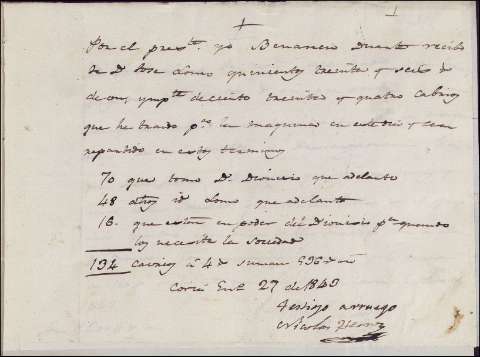 Por el prest.e yo Benancio Duarte recibo
de D. Jose Lomo quinientos treinta y seis r.s
de ymp.te de ciento treinta y quatro cabrios
que he traido p.a la maquina en este dia y sean
repartido en estos terminos
70 que tomo D. Dionicio que adelanto
48 id. Lomo que adelanto
16. que estan en poder del Dionicio p.a quando
los necesite la Sociedad
134 cavrios á 4 r.s suman 536 r.s
27 de 1843
Testigo arruego
Nicolas